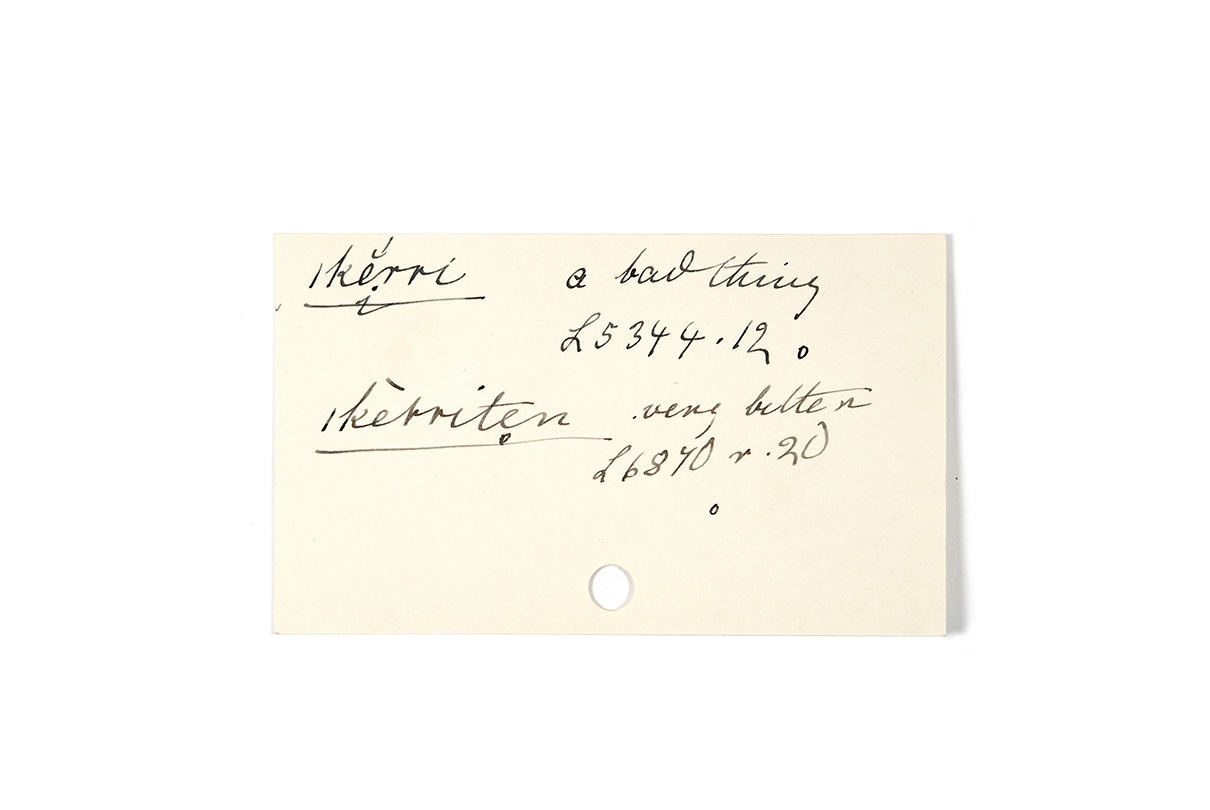 ǀkĕ́rri a bad thing
L5344.12.
ǀkèrriten very bitter
L6870 r.20